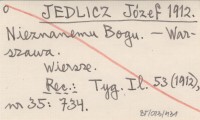 o JEDLICZ Józef 1912.
Nieznanemu Bogu. — War-
szawa.
Wiersze.
Rec.: Tyg. Il. 53 (1912),
nr 35: 734.